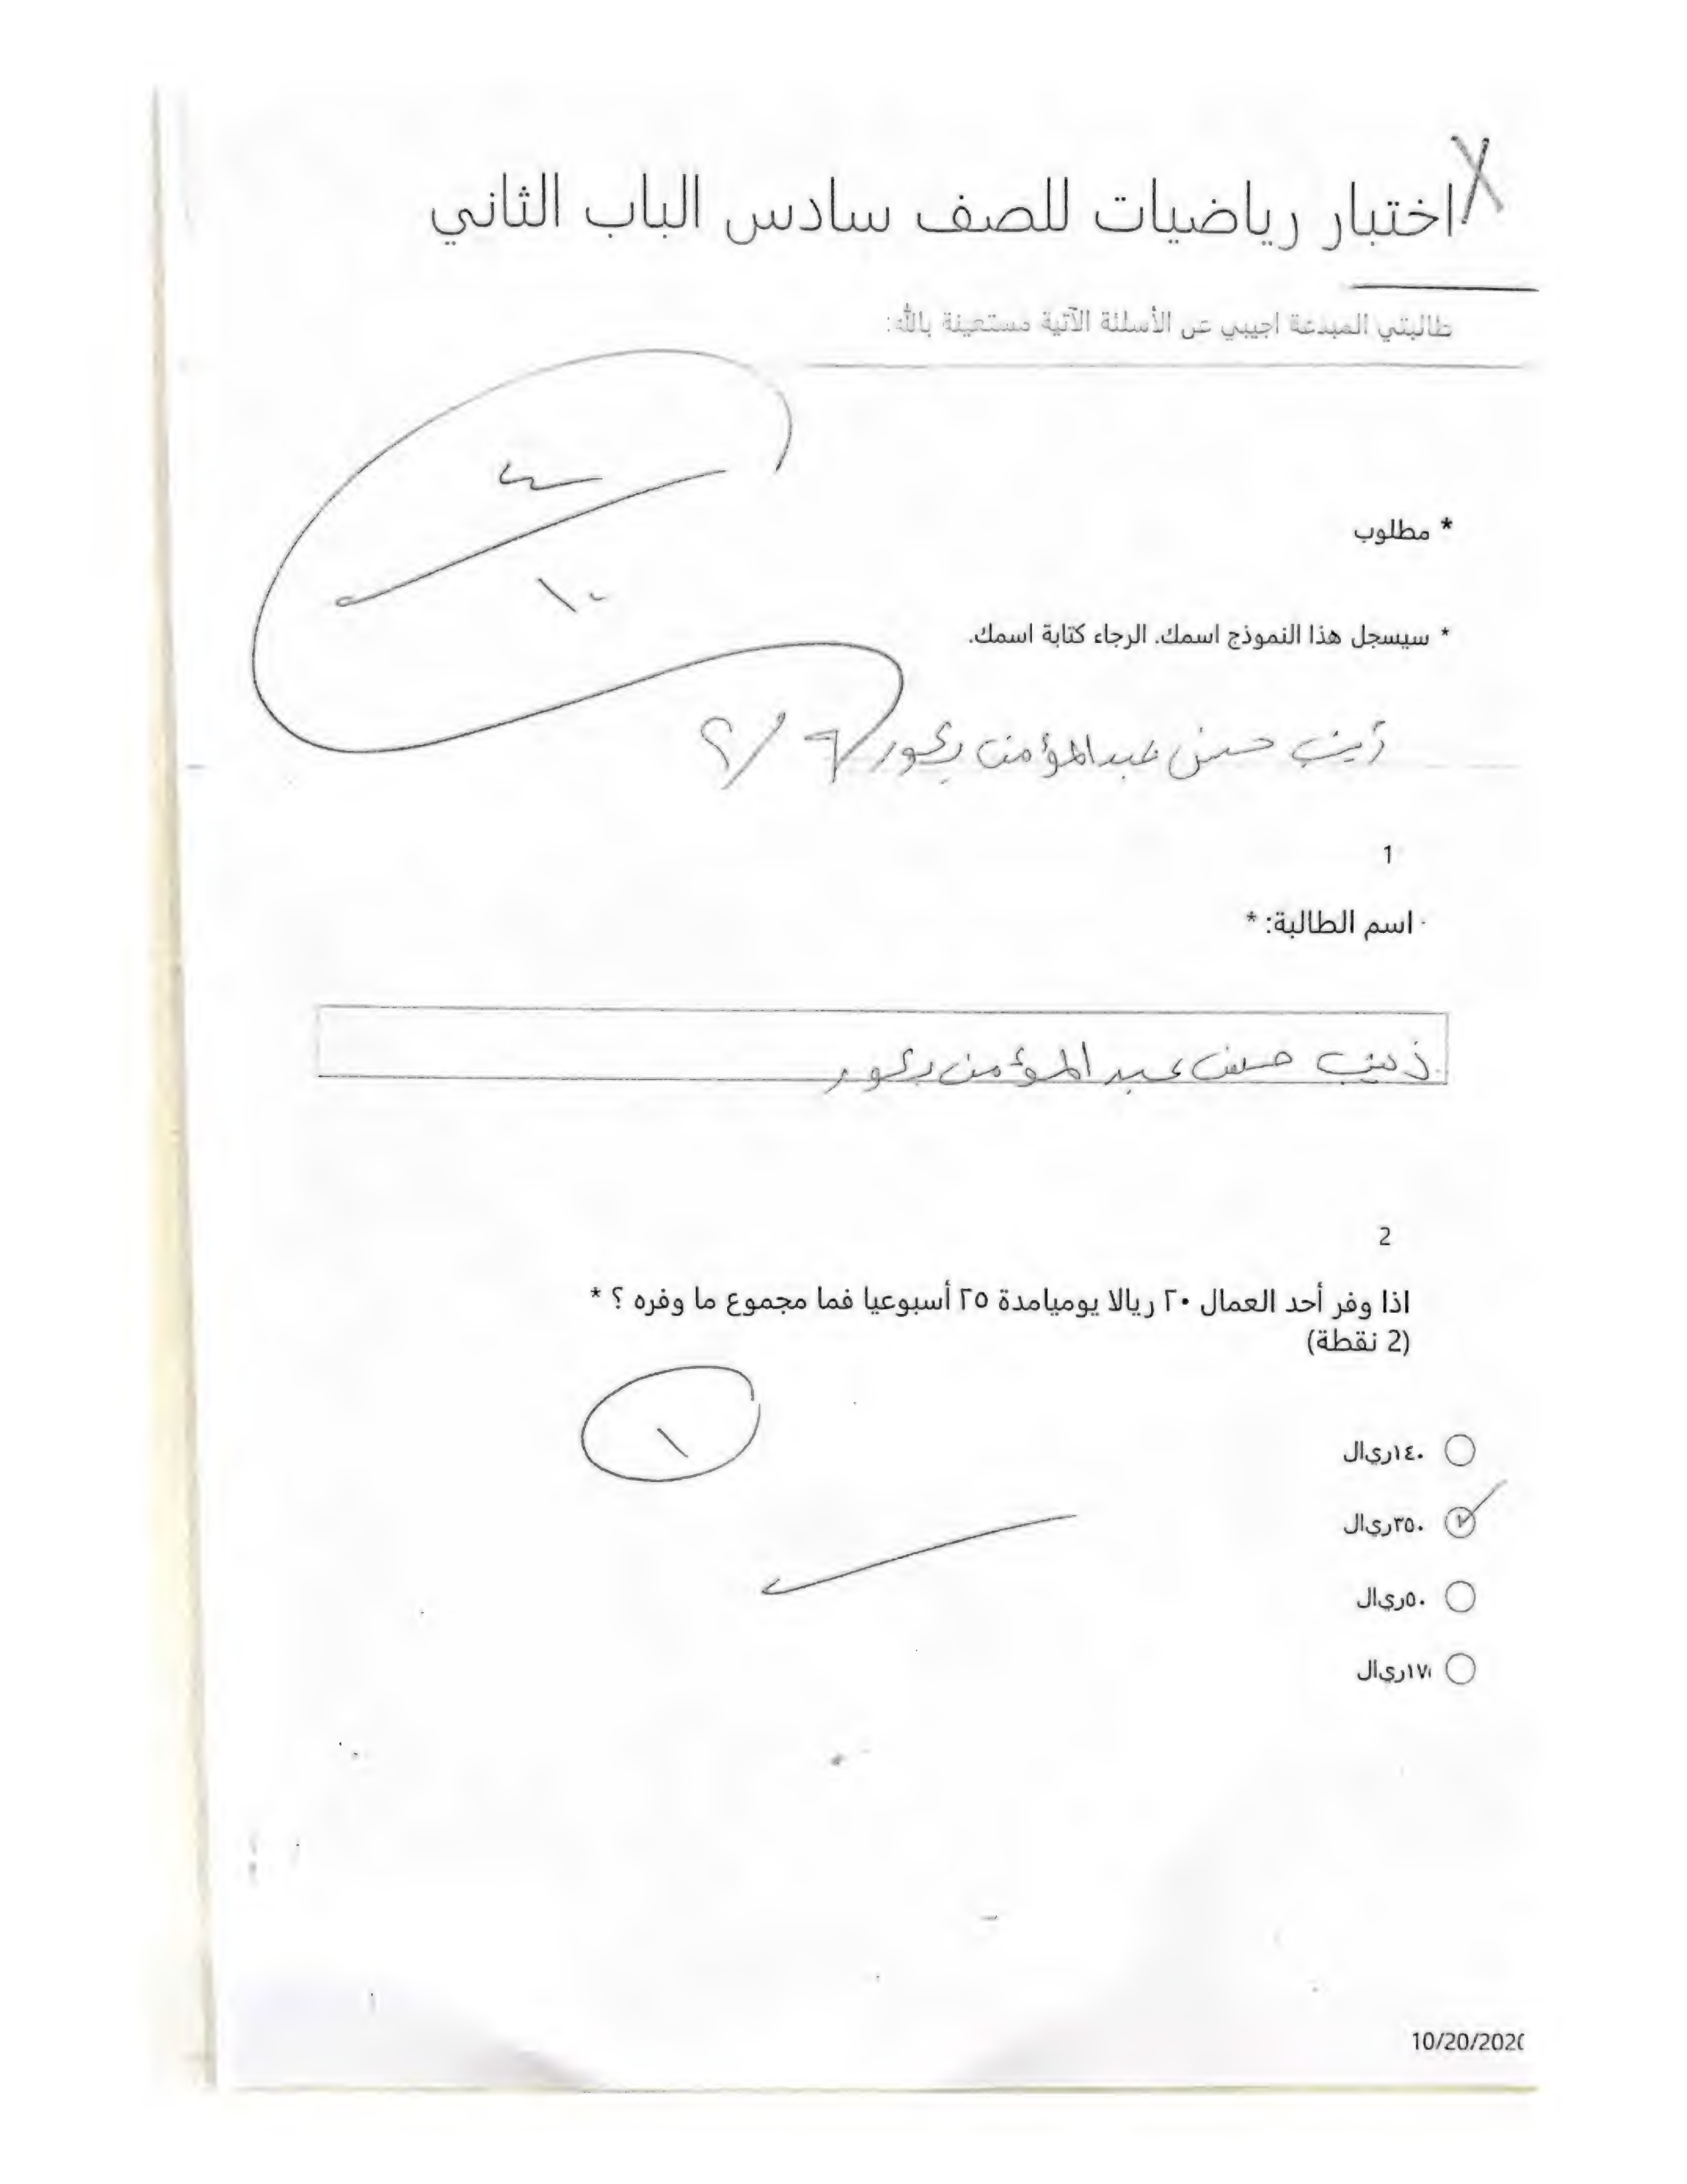 اختبار رياضيات للصف سادس الباب الثاني
طالبتي المبدعة اجيبي عن الأسئلة الآتية مستعينة بالله:
٤
١٠
* مطلوب
* سيسجل هذا النموذج اسمك. الرجاء كتابة اسمك.
زينب حسن عبد المؤمن ٦/٢
1
اسم الطالبة: *
زينب حسن عبد المؤمن
2
اذا وفر أحد العمال ٢٠ ريالا يوميامدة ٢٥ أسبوعيا فما مجموع ما وفره ؟ *
(2 نقطة)
١
١٤٠ريال
٣٥٠ريال
٥٠ريال
١٧١ريال
10/20/2020